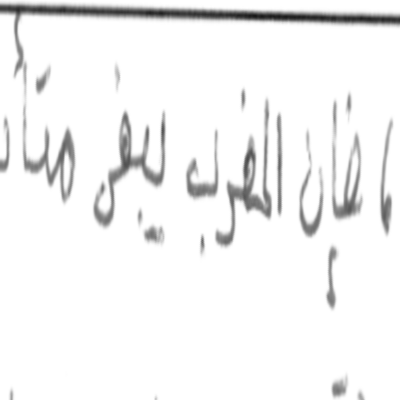 ، فإن المغرب يبقى متأ